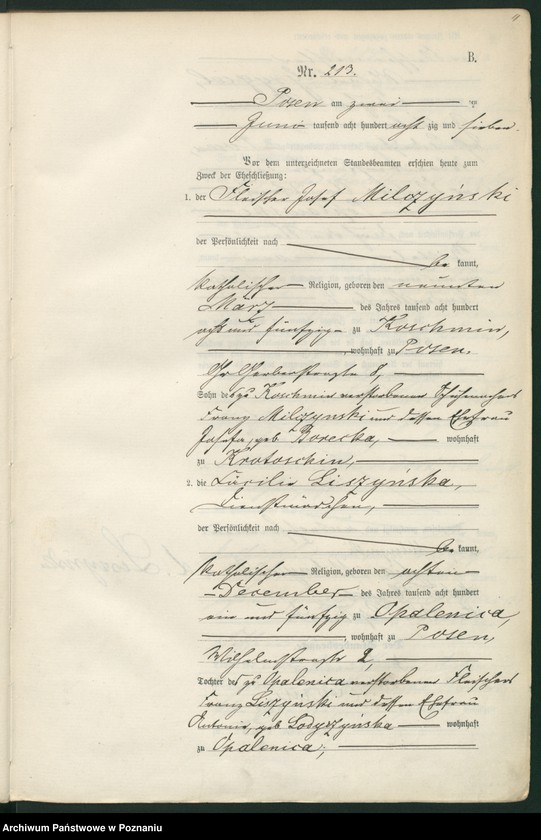 B.
Nr. 213.
Posen am zwei ten
Juni tausend acht hundert acht zig und sieben.
Vor dem unterzeichneten Standesbeamten erschien heute zum
Zweck der Eheschließung:
1. der Fleischer Josef Milczyński
der Persönlichkeit nach
be kannt,
katholischer Religion, geboren den neunten
März des Jahres tausend acht hundert
acht und fünfzig zu Koschmin,
, wohnhaft zu Posen.
Gr Gerberstraße 8,
Sohn des zu Koschmin verstorbenen Schuhmachers
Franz Milczynski und dessen Ehefrau
Josefa, geb Borecka, wohnhaft
zu Krotoschin,
2. die Cäcilie Liszyńska,
Dienstmädchen,
der Persönlichkeit nach
be kannt,
katholischer Religion, geboren den achten
December des Jahres tausend acht hundert
ein und fünfzig zu Opalenica,
, wohnhaft zu Posen,
Wilhelmstraße 2,
Tochter des zu Opalenica verstorbenen Fleischers
Franz Liszyński und dessen Ehefrau
Antonie, geb Lodyzyńska wohnhaft
zu Opalenica;
Archiwum Państwowe w Poznaniu